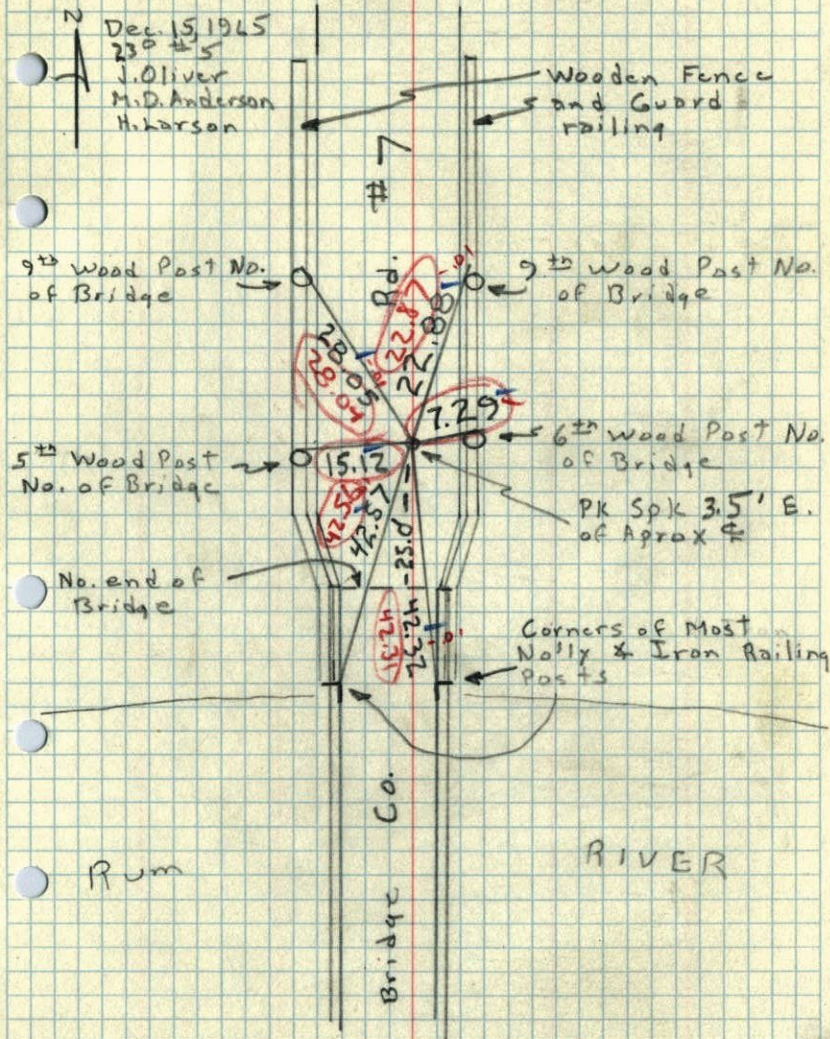 N
Dec. 15, 1965
23° #5
J. Oliver
M.D. Anderson
H. Larson
Wooden Fence
and Guard
railing
# 7
Rd.
9th Wood Post No.
of Bridge
9th Wood Post No.
of Bridge
-.01
22.87
22.88
28.05
28.04
-.01
7.29
5th Wood Post
No. of Bridge
15.12
6th Wood Post No.
of Bridge
42.56
42.57
-25.0-
PK Spk 3.5' E.
of Aprox ℄
No. end of
Bridge
42.31
42.32
-.01
Corners of Most
No'ly & Iron Railing
Posts
Co.
Bridge
Rum
RIVER